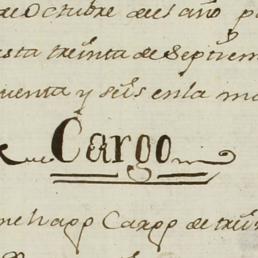 de Octubre del año p
asta treinta de Septiem
quenta y seis en la ma
Cargo
me hago Cargo de trein